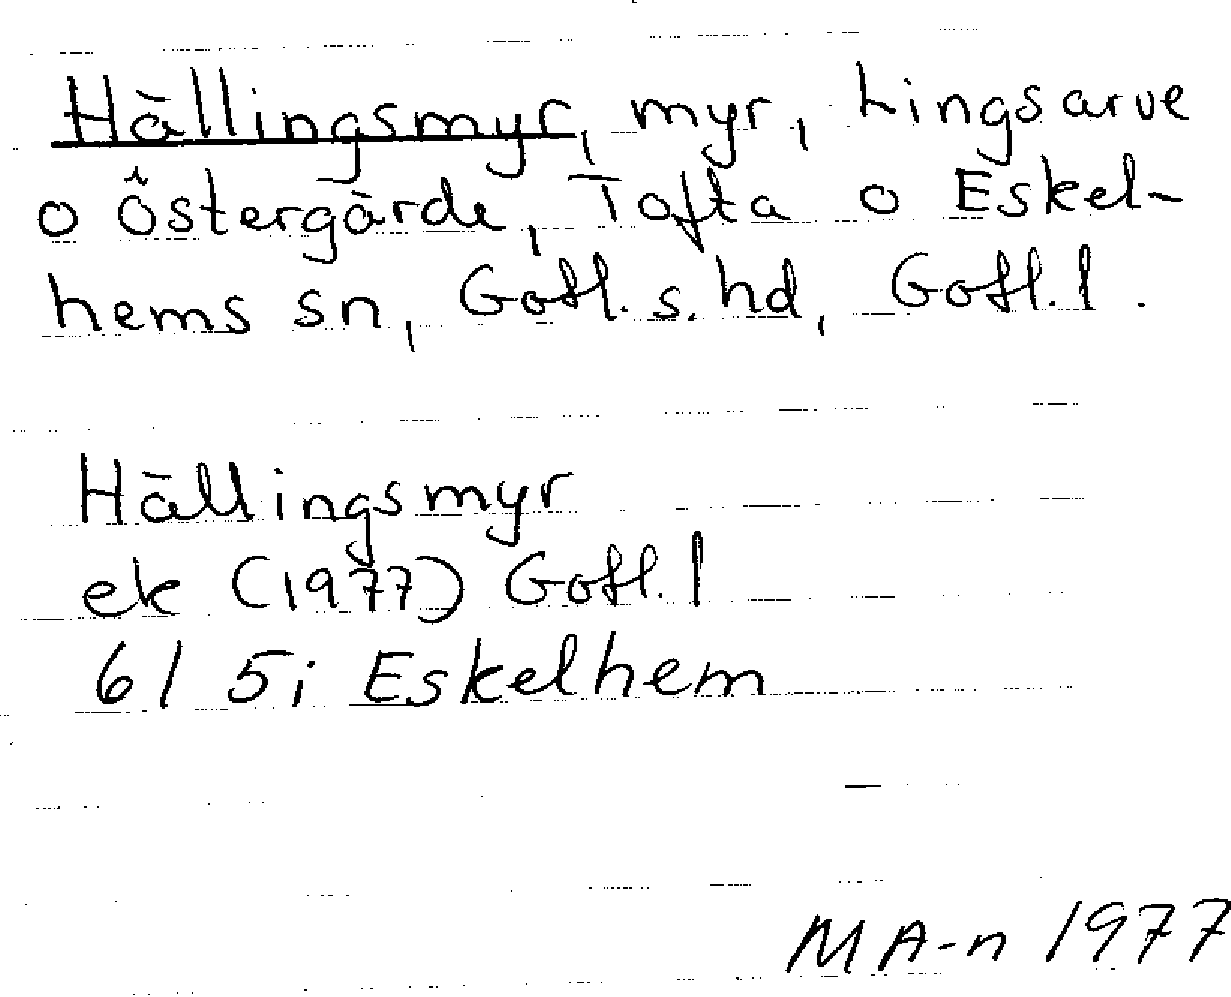 Hällingsmyr, myr, Lingsarve
o Östergårde, Tofta o Eskel-
hems sn, Gotl. s. hd, Gotl. l.
Hällingsmyr
ek (1977) Gotl. l
6I 5i Eskelhem
MA-n 1977